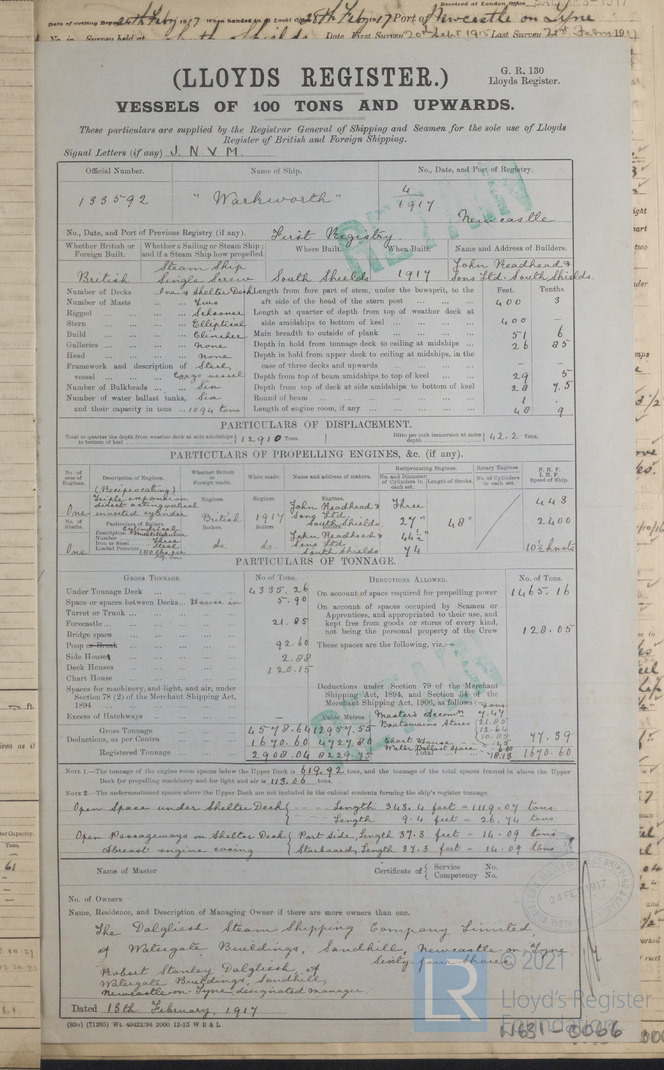 Received at London Office
Date of writing Report 24th Feby 1917 When handed in at Local Office 28th Feby 1917 Port of Newcastle on Tyne
No. in Survey held at South Shields Date, First Survey 20th Sept 1915 Last Survey 191
(LLOYDS REGISTER.)
G. R. 130
Lloyds Register.
VESSELS OF 100 TONS AND UPWARDS.
These particulars are supplied by the Registrar General of Shipping and Seamen for the sole use of Lloyds
Register of British and Foreign Shipping.
Signal Letters (if any) J. N. V. M.
Official Number. Name of Ship. No., Date, and Port of Registry.
133592 "Warkworth" 4/1917 Newcastle
RETAIN
No., Date, and Port of Previous Registry (if any). First Registry
Whether British or Foreign Built. Whether a Sailing or Steam Ship; and if a Steam Ship how propelled. Where Built. When Built. Name and Address of Builders.
British Steam Ship Single Screw South Shields 1917 John Readhead & Sons Ltd. South Shields.
Number of Decks ... One & Shelter Deck Length from fore part of stem, under the bowsprit, to the Feet. Tenths
Number of Masts ... Two aft side of the head of the stern post ... 400 3
Rigged ... Schooner Length at quarter of depth from top of weather deck at
Stern ... Elliptical side amidships to bottom of keel ... 400 —
Build ... Clincher Main breadth to outside of plank ... 51 6
Galleries ... None Depth in hold from tonnage deck to ceiling at midships ... 26 85
Head ... none Depth in hold from upper deck to ceiling at midships, in the
Framework and description of Steel, case of three decks and upwards ... — —
vessel ... Cargo vessel Depth from top of beam amidships to top of keel ... 29 5
Number of Bulkheads ... Six Depth from top of deck at side amidships to bottom of keel 28 75
Number of water ballast tanks, Six Round of beam ... 1 .
and their capacity in tons ... 1094 tons Length of engine room, if any ... 48 9
PARTICULARS OF DISPLACEMENT.
Total to quarter the depth from weather deck at side amidships to bottom of keel 12910 Tons. Ditto per inch immersion at same depth 42.2 Tons.
PARTICULARS OF PROPELLING ENGINES, &c. (if any).
No. of sets of Engines. Description of Engines. Whether British or Foreign made. When made. Name and address of makers. Reciprocating Engines. Rotary Engines. N. H. P. I. H. P. Speed of Ship.
No. and Diameter of Cylinders in each set. Length of Stroke. No. of Cylinders in each set.
One (Reciprocating) Triple expansion direct acting vertical inverted cylinder Engines. British Engines. 1917 Engines. John Readhead & Sons Ltd, South Shields Three 27" 44½" 74 48" 443 2400 10½ knots
No. of Shafts. Particulars of Boilers
One Description Cylindrical Multitubular Number Three Iron or Steel Steel Loaded Pressure 180 lbs per sq. in. Boilers do. Boilers do. John Readhead & Sons Ltd, South Shields
PARTICULARS OF TONNAGE.
GROSS TONNAGE. No of Tons. DEDUCTIONS ALLOWED. No. of Tons.
Under Tonnage Deck ... 4335.26 On account of space required for propelling power 1465.16
Space or spaces between Decks... House in 5.90 On account of spaces occupied by Seamen or
Turret or Trunk ... Apprentices, and appropriated to their use, and
Forecastle ... 21.85 kept free from goods or stores of every kind,
Bridge space ... not being the personal property of the Crew 128.05
Poop or Break ... 92.60 These spaces are the following, viz.:—
Side Houses ... 2.88
Deck Houses ... 120.15
Chart House ...
Spaces for machinery, and light, and air, under Section 78 (2) of the Merchant Shipping Act, 1894 ... Deductions under Section 79 of the Merchant Shipping Act, 1894, and Section 54 of the Merchant Shipping Act, 1906, as follows: Tons
Excess of Hatchways ... — Cubic Metres Master's Accomn 7.47
Boatswains Stores
Gross Tonnage 4578.64 12957.55
Deductions, as per Contra 1670.60 4727.80 Chart House 77.39
Registered Tonnage 2908.04 8229.75 Water Ballast Space Total 1670.60
NOTE 1.—The tonnage of the engine room spaces below the Upper Deck is 619.92 tons, and the tonnage of the total spaces framed in above the Upper
Deck for propelling machinery and for light and air is 113.06 tons.
NOTE 2.—The undermentioned spaces above the Upper Deck are not included in the cubical contents forming the ship's register tonnage.
Open Space under Shelter Deck { Length 343.4 feet = 1119.07 tons
Length 9.4 feet = 26.74 tons
Open Passageways on Shelter Deck { Port Side, Length 37.3 feet = 14.09 tons
Abreast engine casing { Starboard, Length 37.3 feet = 14.09 tons
Name of Master Certificate of { Service No.
Competency No.
24 FEB 1917
No. of Owners
Name, Residence, and Description of Managing Owner if there are more owners than one.
The Dalgliesh Steam Shipping Company Limited,
of Watergate Buildings, Sandhill, Newcastle on Tyne
Sixty-four Shares
Robert Stanley Dalgliesh, of
Watergate Buildings, Sandhill,
Newcastle-on-Tyne, designated manager.
Dated 13th February, 1917
(83o) (71285) Wt. 40422/94 2000 12-15 W B & L
LR
© 2021
Lloyd's Register
Foundation
N631-0066